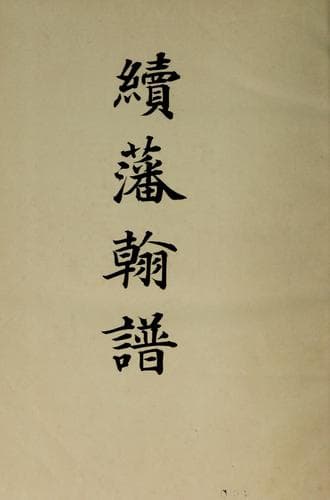 續藩翰譜